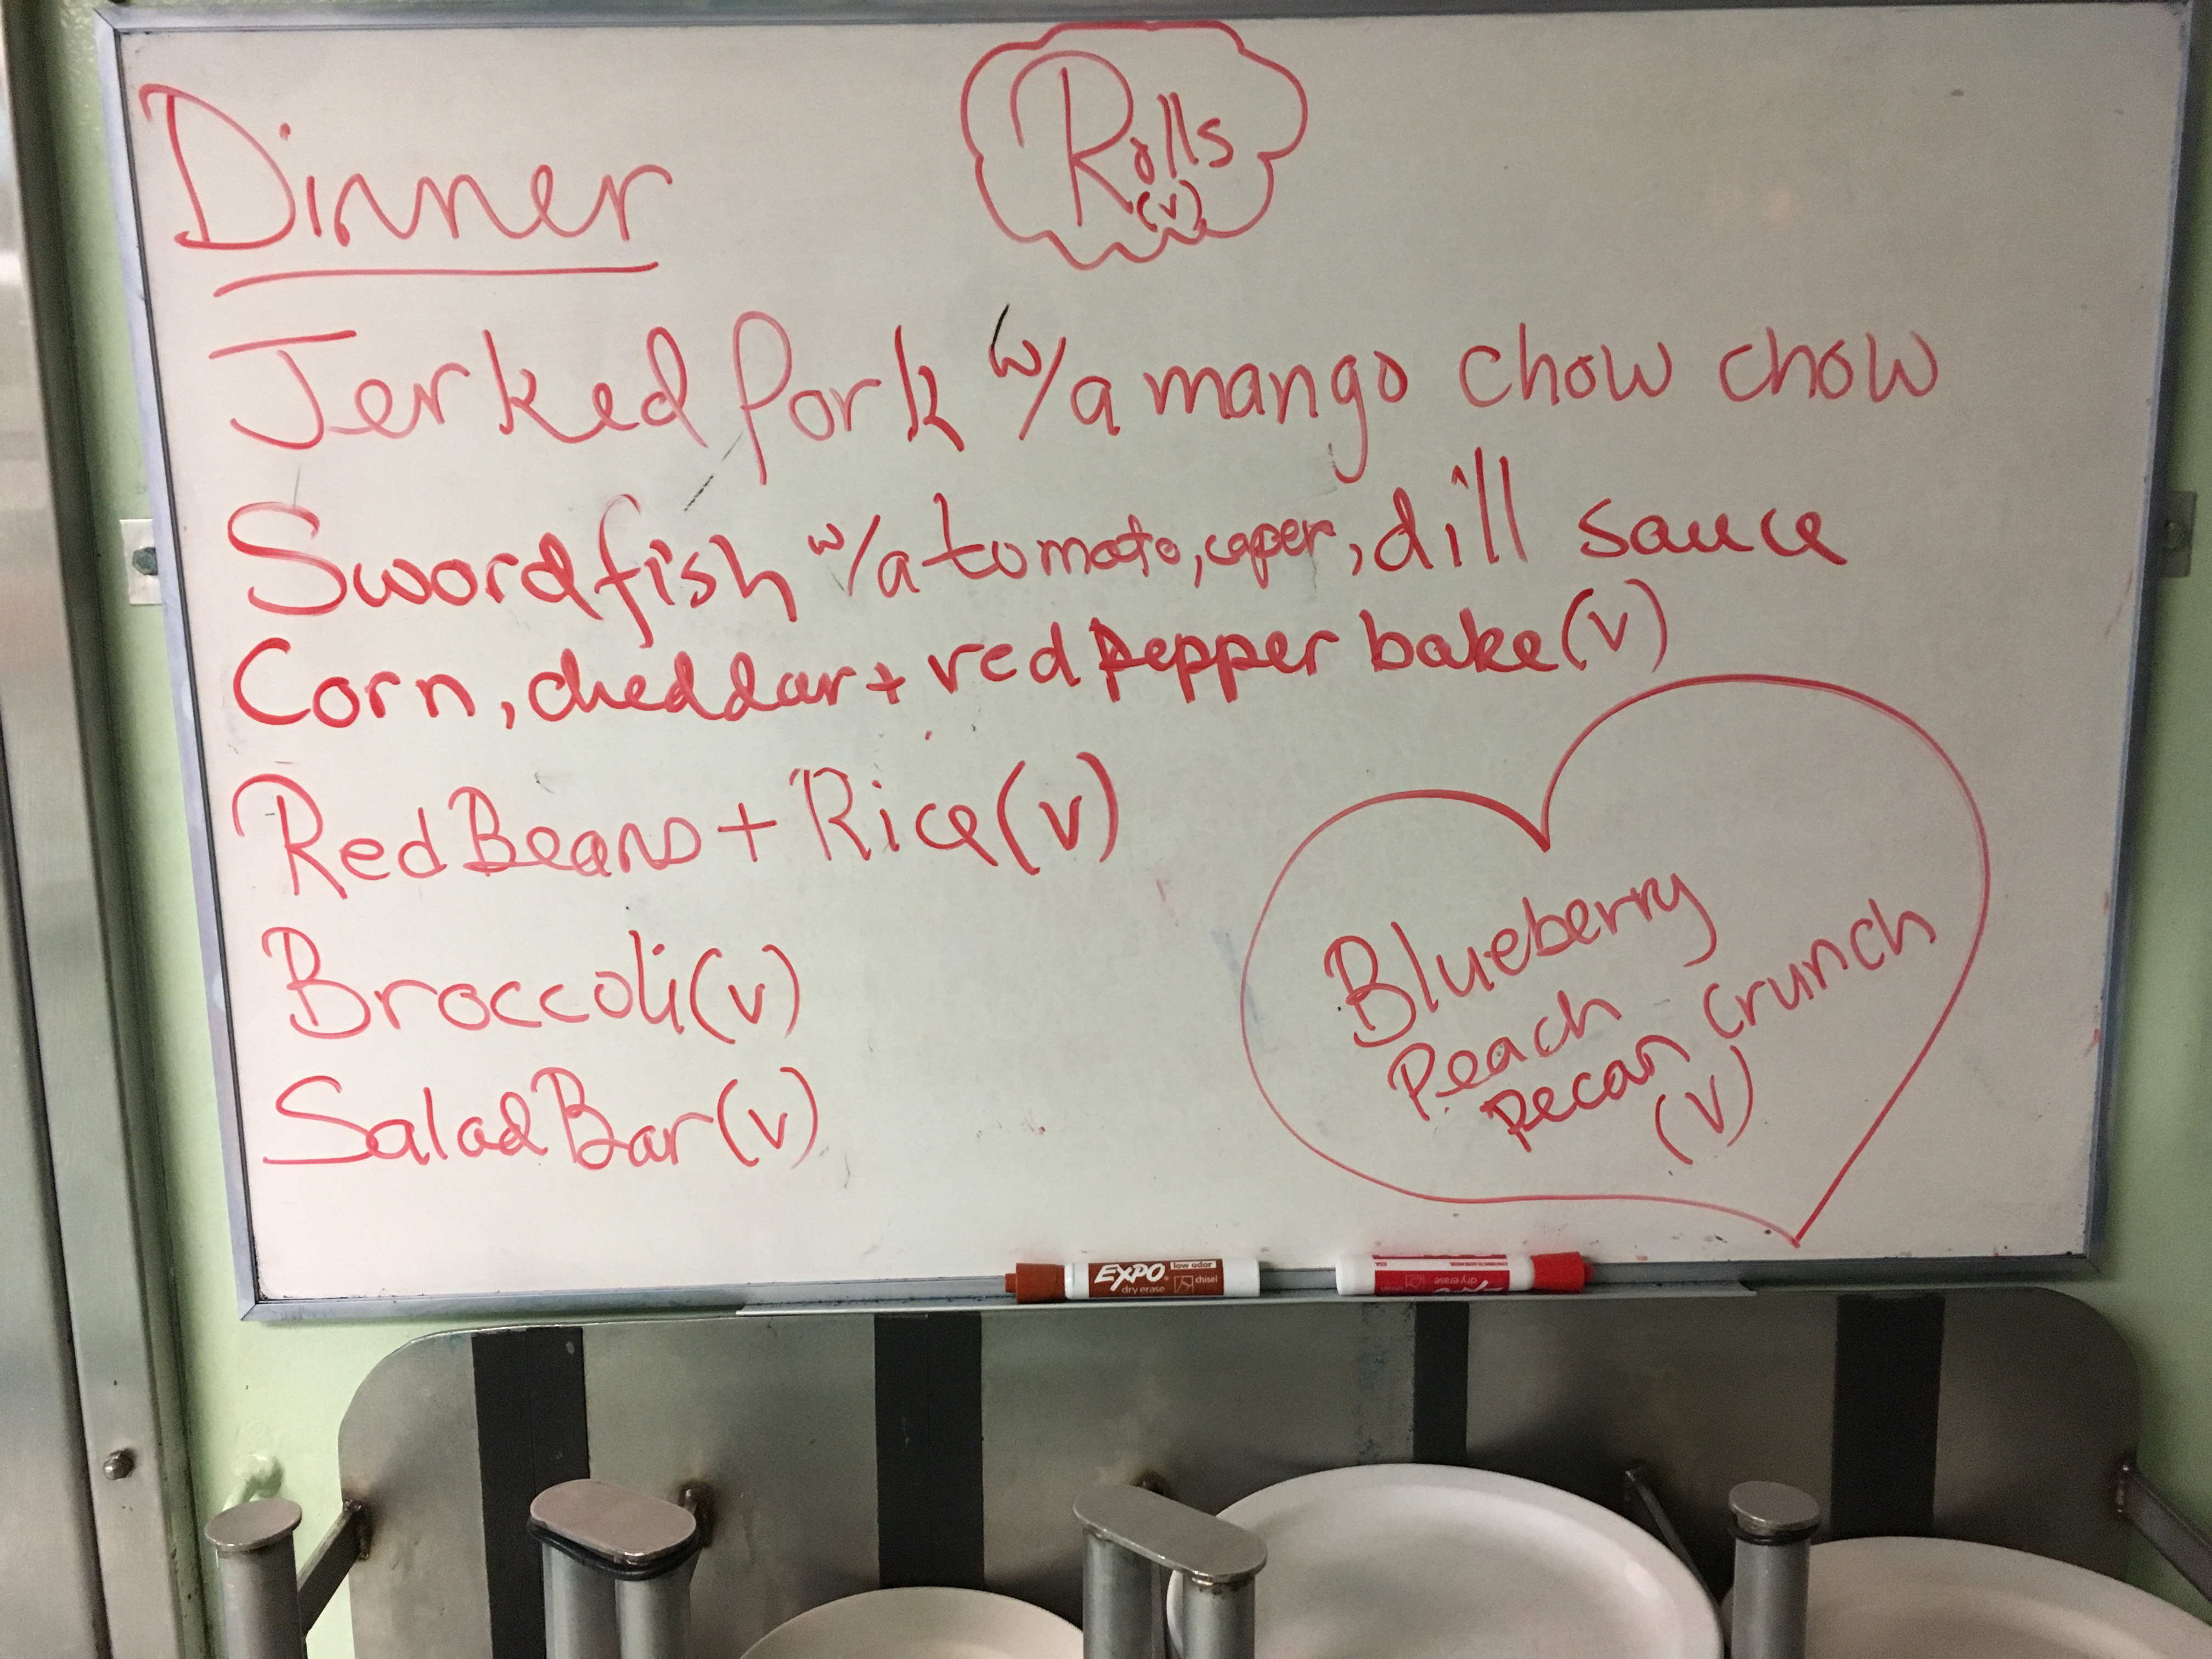 Dinner
Rolls
(v)
Jerked Pork w/a mango chow chow
Swordfish w/a tomato, caper, dill sauce
Corn, cheddar + red pepper bake (v)
Red Beans + Rice (v)
Broccoli (v)
Salad Bar (v)
Blueberry
Peach
Pecan Crunch
(v)
EXPO
low odor
dry erase
chisel
dry erase